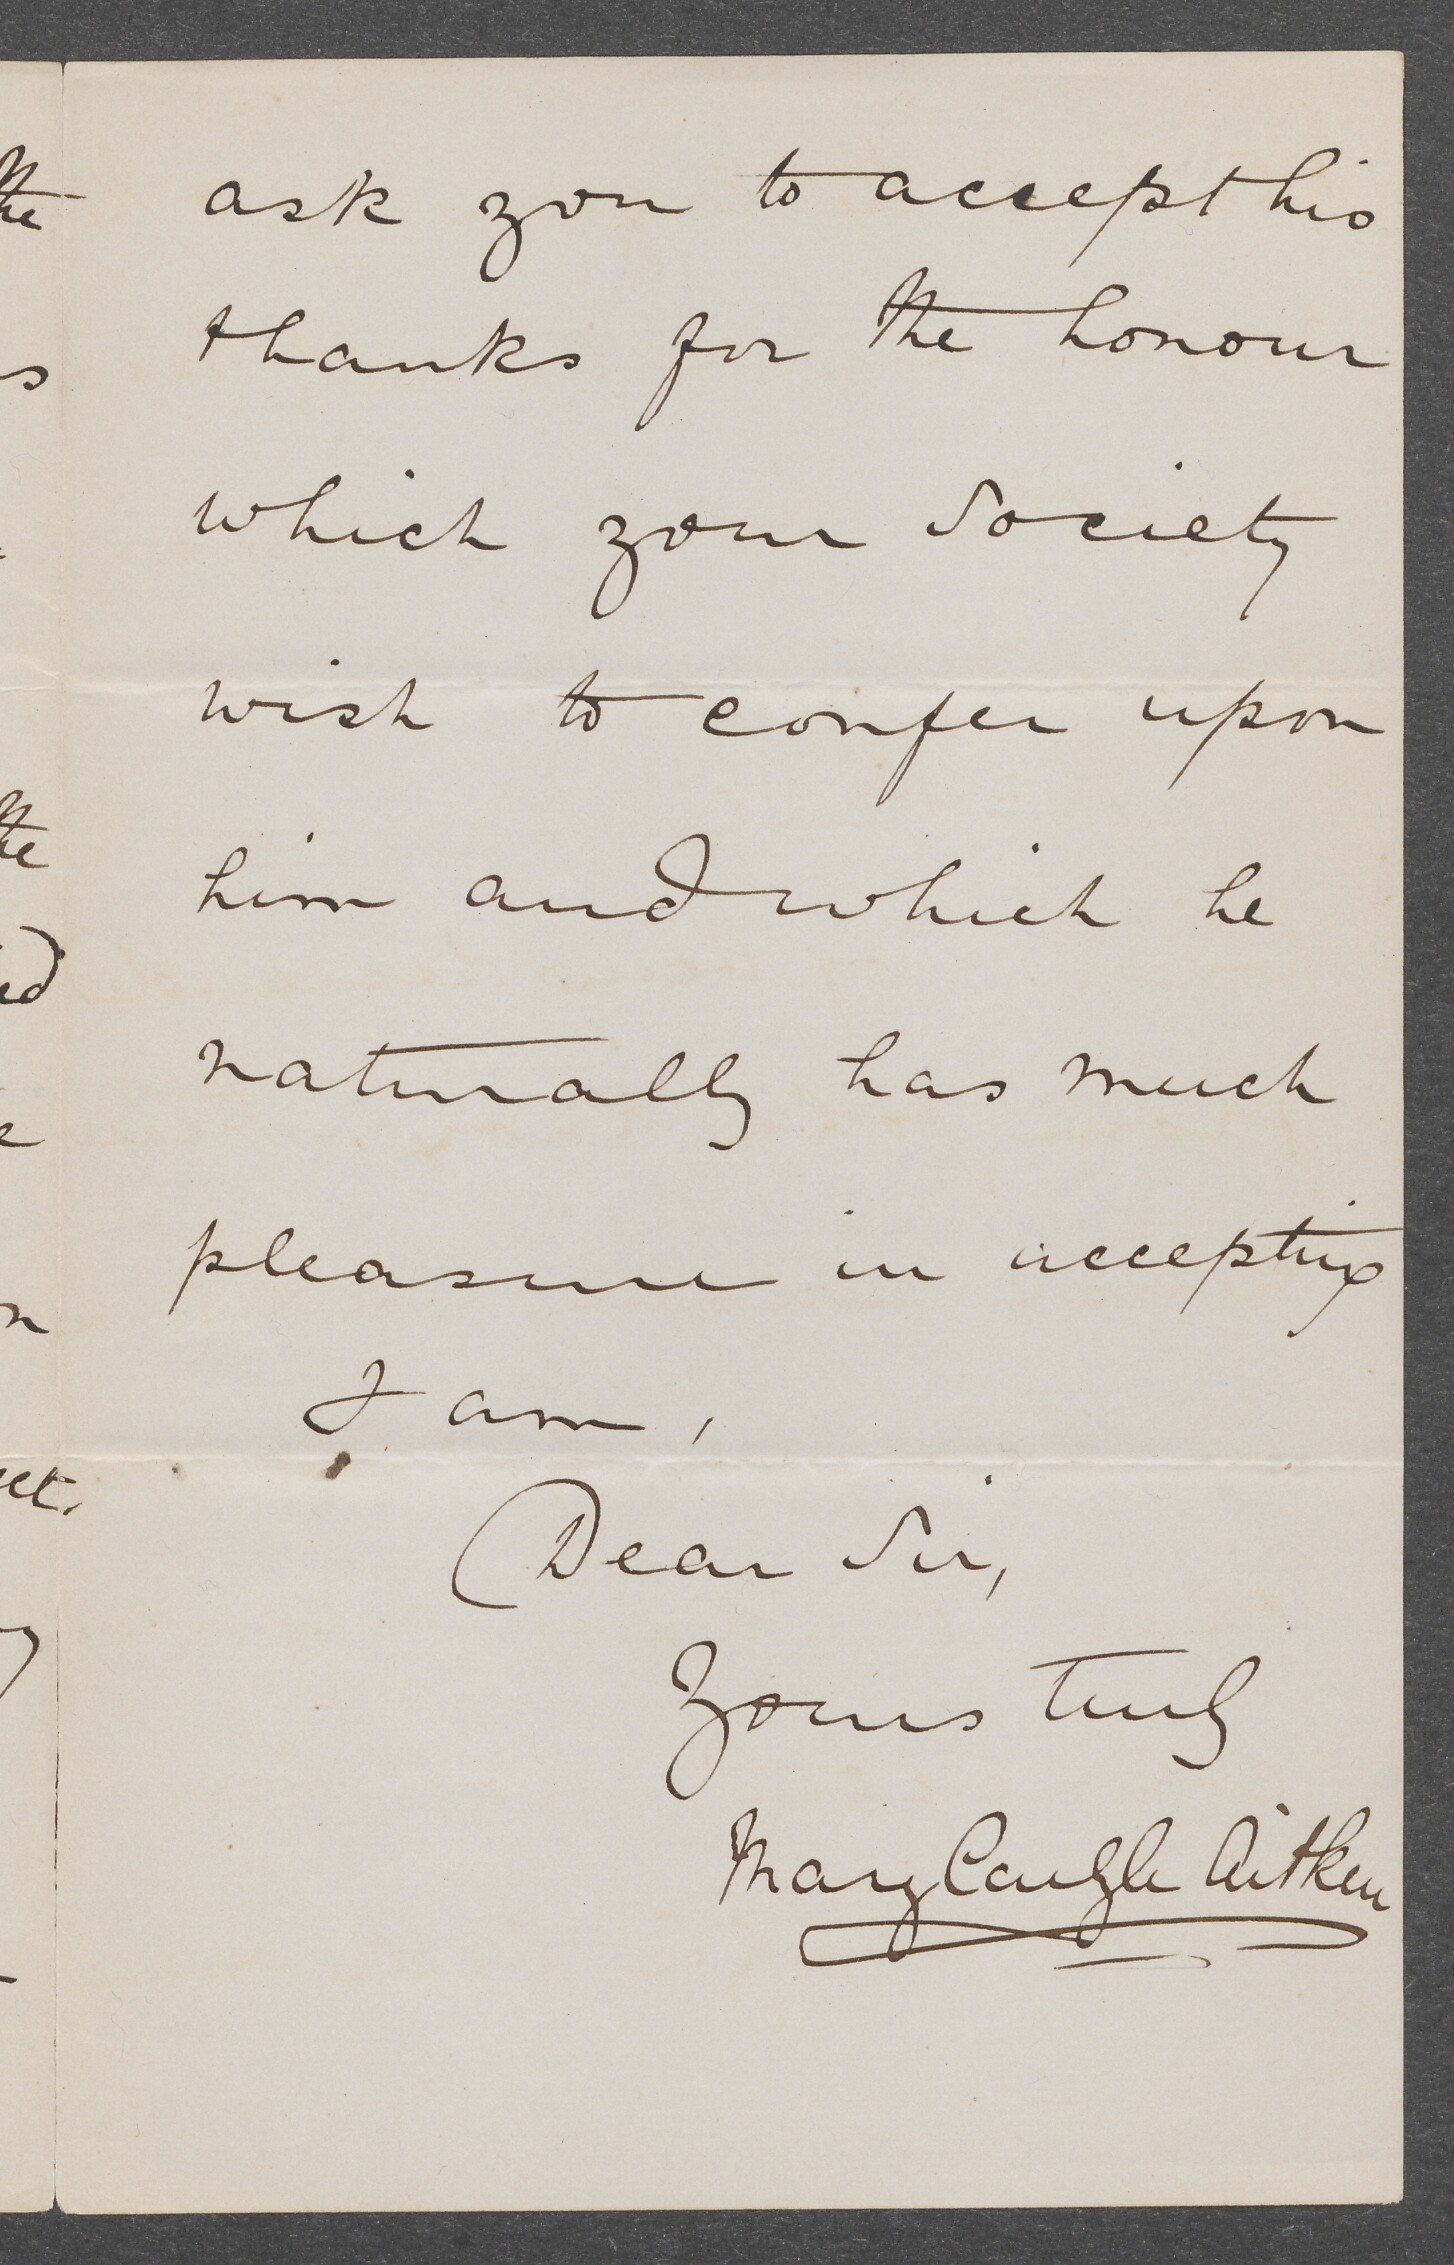 ask you to accept his
thanks for the honour
which your Society
wish to confer upon
him and which he
naturally has much
pleasure in accepting
I am,
Dear Sir,
Yours truly
Mary Carlyle Aitken